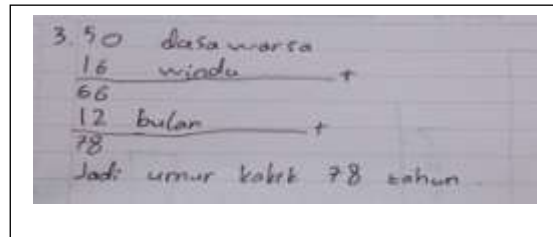 3. 50 dasawarsa
16 windu +
66
12 bulan +
78
Jadi umur kakek 78 tahun